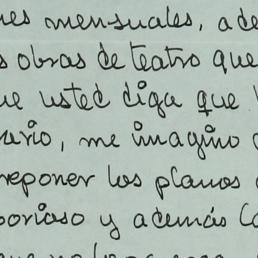 nes mensuales, ade
s obras de teatro que
ue usted diga que
ario, me imagino
reponer los planos
borioso y además